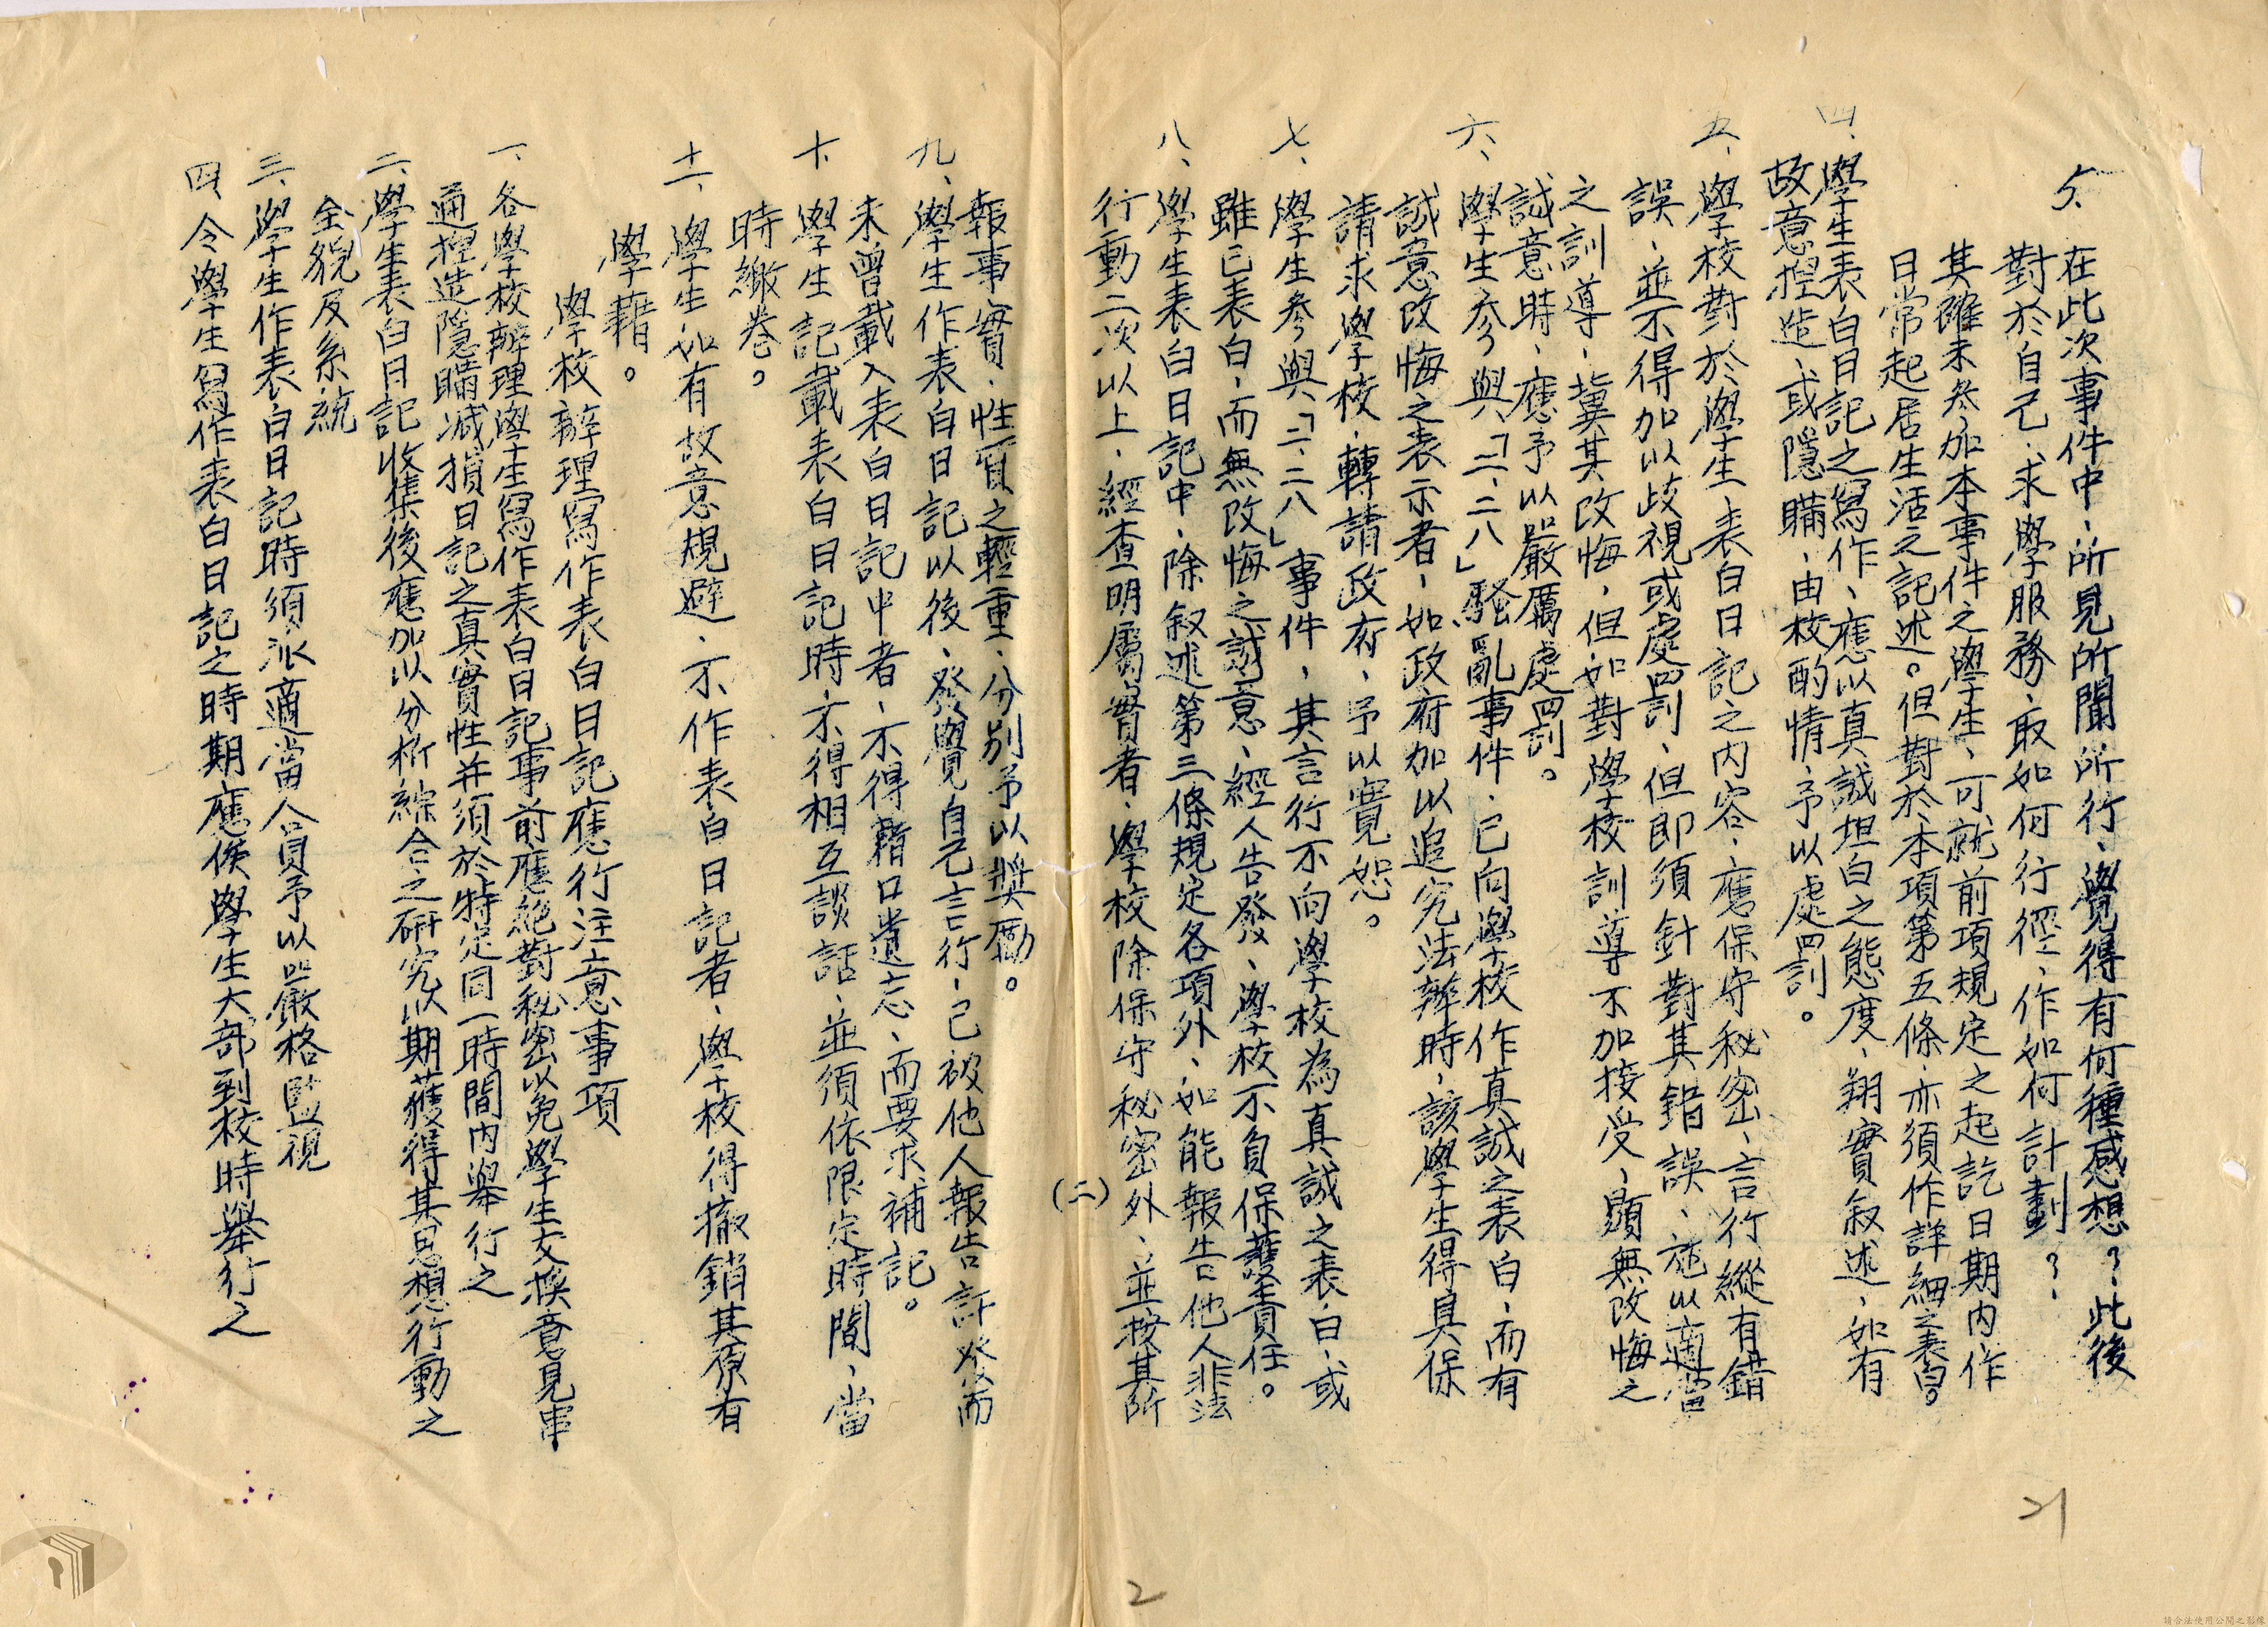 5、在此次事件中、所見所聞所行、覺得有何種感想？、此後
對於自己、求學服務、取如何行徑、作如何計劃？、
其確未參加本事件之學生、可就前項規定之起訖日期內、作
日常起居生活之記述。但對於本項第五條、亦須作詳細之表白。
四、學生表白日記之寫作、應以真誠坦白之態度、翔實叙述、如有
故意揑造、或隱瞞、由校酌情、予以處罰。
五、學校對於學生、表白日記之內容、應保守秘密、言行縱有錯
誤、並不得加以歧視或處罰、但即須針對其錯誤、施以適當
之訓導、冀其改悔、但如對學校訓導不加接受、顯無改悔之
誠意時、應予以嚴厲處罰。
六、學生參與「二、二八」騷亂事件、已向學校作真誠之表白、而有
誠意改悔之表示者、如政府加以追究法辦時、該學生得具保
請求學校、轉請政府、予以寬恕。
七、學生參與「二、二八」事件、其言行不向學校為真誠之表白、或
雖已表白、而無改悔之誠意、經人告發、學校不負保護責任。
八、學生表白日記中、除叙述第三條規定各項外、如能報告他人非法
行動二次以上、經查明屬實者、學校除保守秘密外、並按其所
(二)
報事實、性質之輕重、分別予以獎勵。
九、學生作表白日記以後、發覺自己言行、已被他人報告訐發而
未曾載入表白日記中者、不得藉口遺忘、而要求補記。
十、學生記載表白日記時、不得相互談話、並須依限定時間、當
時繳卷。
十一、學生如有故意規避、不作表白日記者、學校得撤銷其原有
學籍。
學校辦理寫作表白日記應行注意事項
一、各學校辦理學生寫作表白日記事前應絕對秘密以免學生交換意見串
通揑造隱瞞减損日記之真實性并須於特定同一時間內舉行之
二、學生表白日記收集後應加以分析綜合之研究以期獲得其思想行動之
全貌及系統
三、學生作表白日記時須派適當人員予以嚴格監視
四、令學生寫作表白日記之時期應候學生大部到校時舉行之
21
2
請合法使用公開之影像